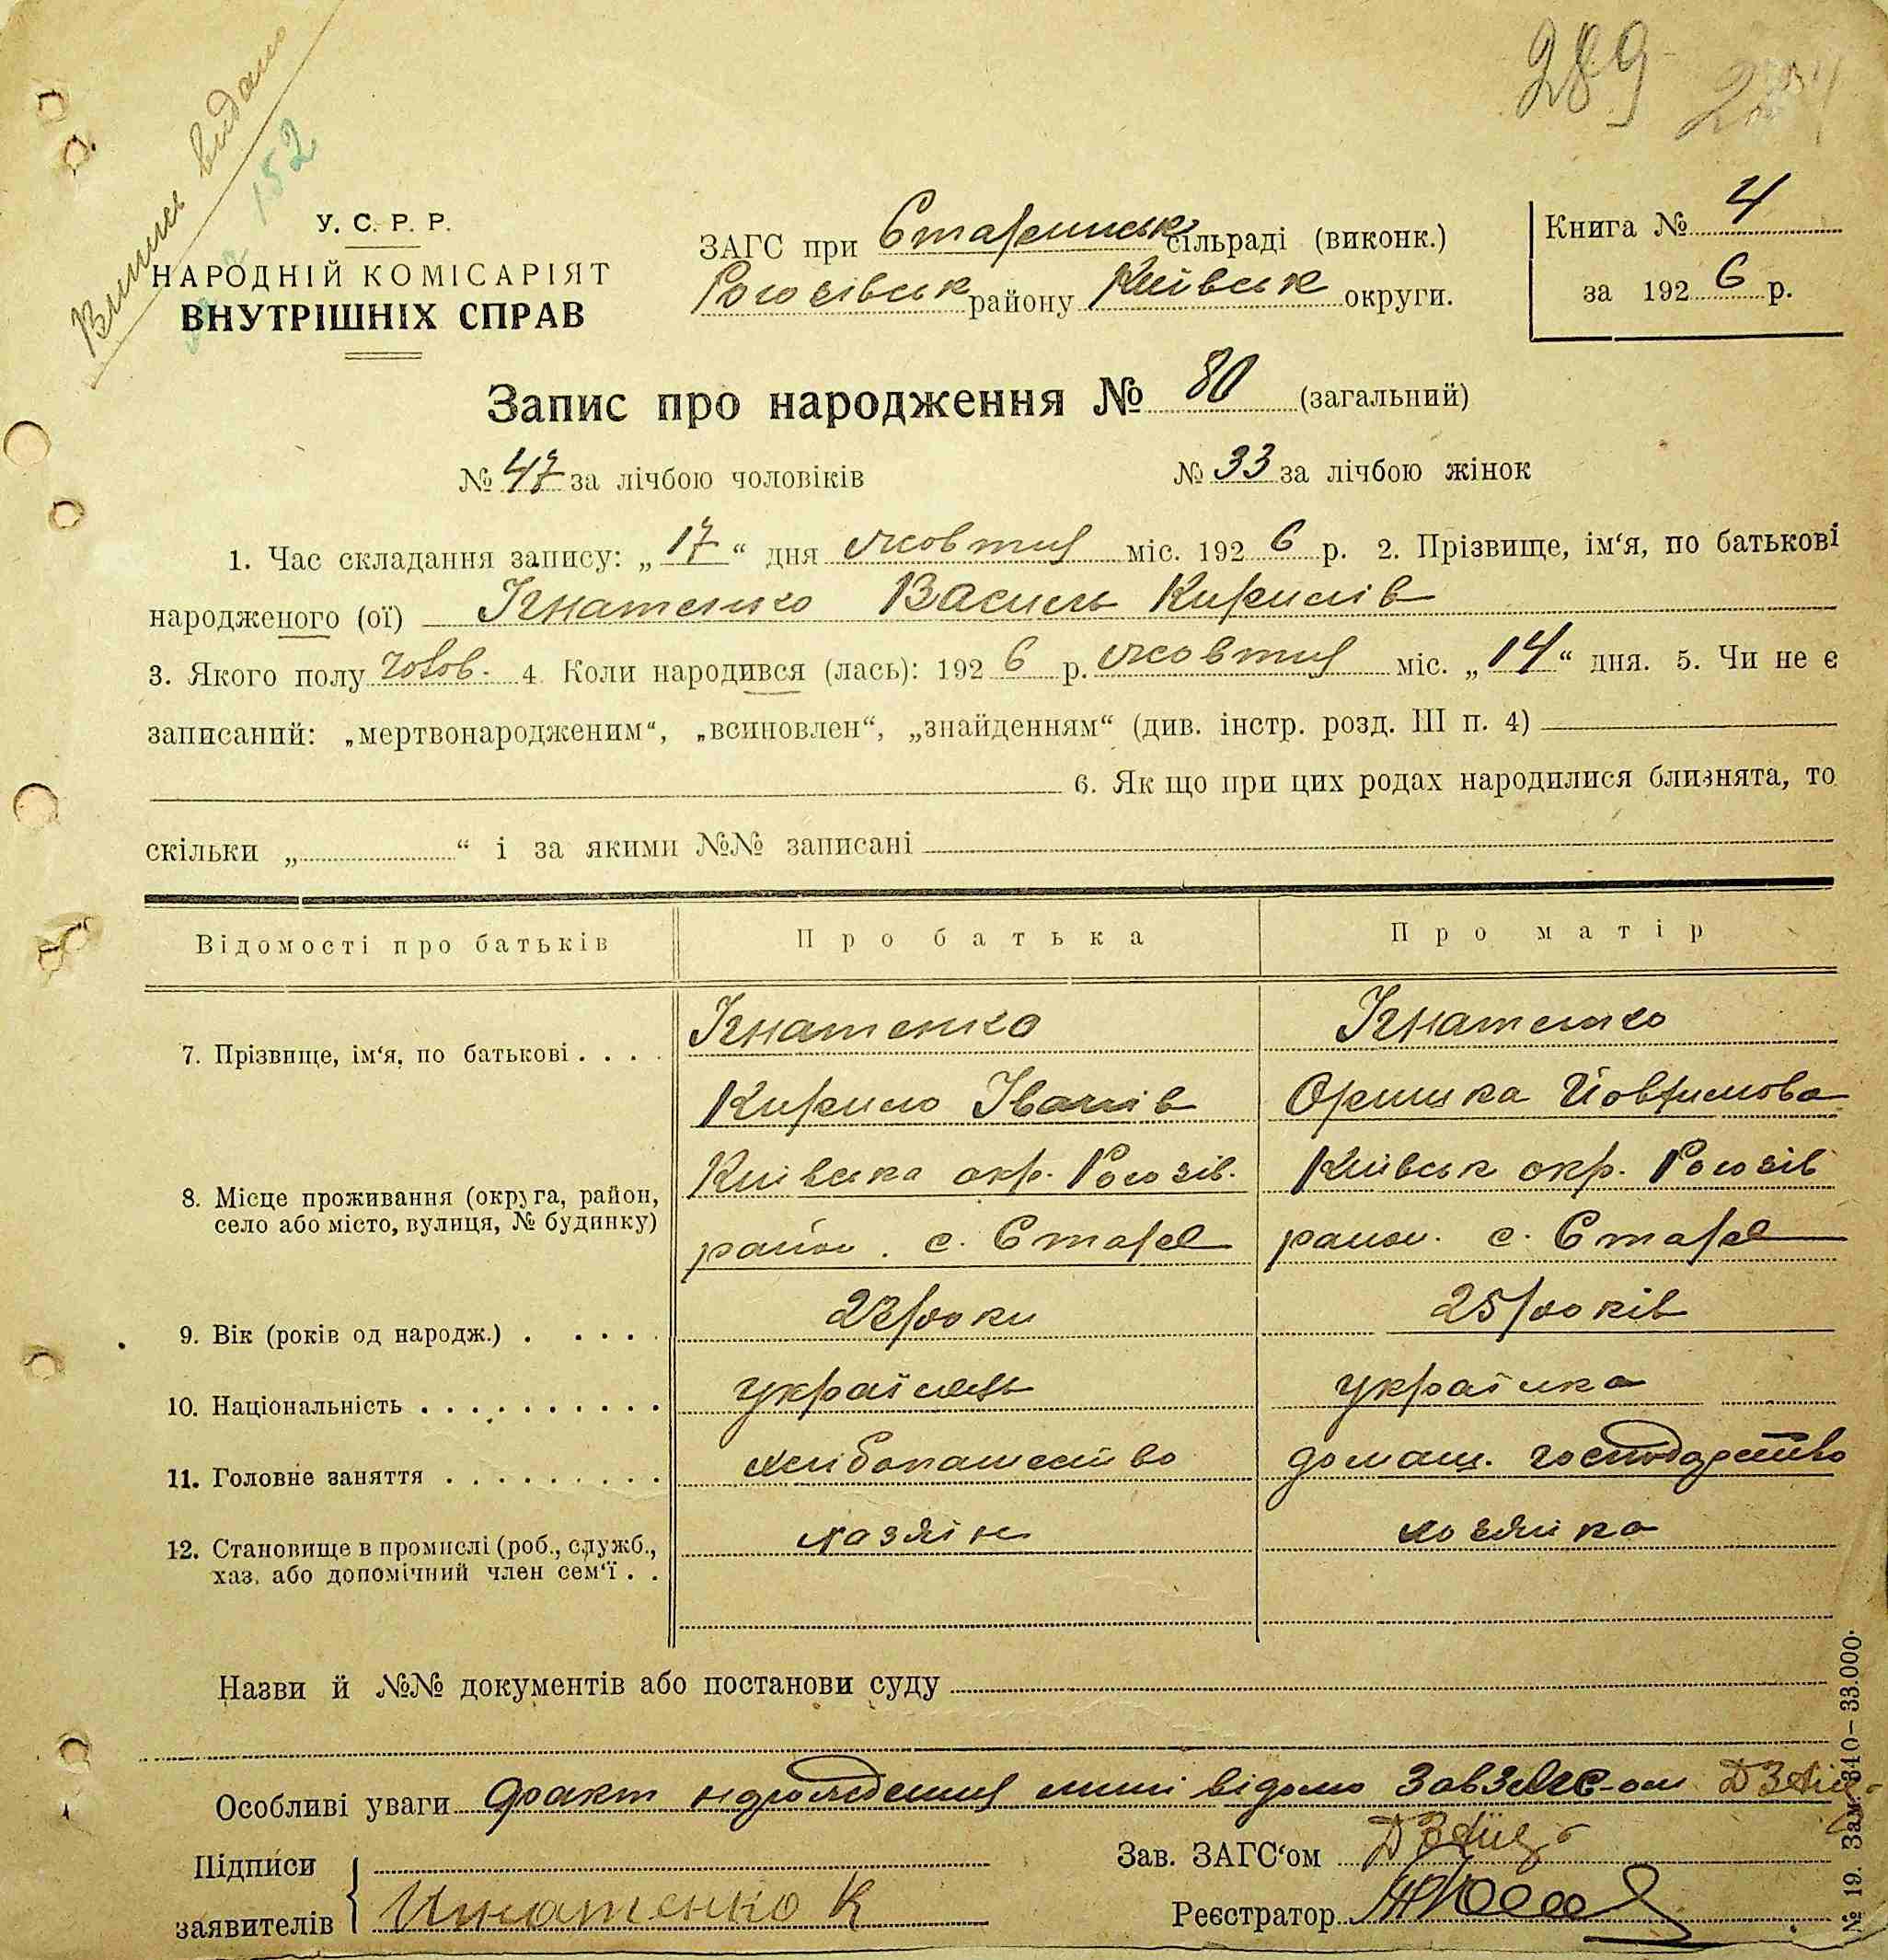 289
Випись видано
152
У. С. Р. Р.
НАРОДНІЙ КОМІСАРІЯТ
ВНУТРІШНІХ СПРАВ
ЗАГС при Старинськ сільраді (виконк.)
Рогозівськ району Київськ округи.
Книга № 4
за 1926 р.
Запис про народження № 80 (загальний)
№ 47 за лічбою чоловіків № 33 за лічбою жінок
1. Час складання запису: „17“ дня жовтня міс. 1926 р. 2. Прізвище, ім‘я, по батькові
народженого (ої) Ігнатенко Василь Кирилів
3. Якого полу чолов. 4. Коли народився (лась): 1926 р. жовтня міс. „14“ дня. 5. Чи не є
записаний: „мертвонародженим“, „всиновлен“, „знайденням“ (див. інстр. розд. III п. 4)
6. Як що при цих родах народилися близнята, то
скільки „ “ і за якими №№ записані
Відомості про батьків Про батька Про матір
7. Прізвище, ім‘я, по батькові . . . . Ігнатенко Ігнатенко
Кирило Іванів Оришка Йовхимова
8. Місце проживання (округа, район, село або місто, вулиця, № будинку) Київська окр. Рогозів. Київськ окр. Рогозів
район. с. Старе район. с. Старе
9. Вік (років од народж.) . . . . . 22/роки 25/років
10. Національність . . . . . . . . . . українець українка
11. Головне заняття . . . . . . . . . хлібопашество домашн. господарство
12. Становище в промислі (роб., служб., хазяїн хозяйка
хаз. або допомічний член сем‘ї . .
Назви й №№ документів або постанови суду
Особливі уваги факт народження мині відомо ЗавЗАГС-ом
Підписи
заявителів Игнатенко К
Зав. ЗАГС‘ом
Реєстратор
№ 19. Зам. 340—33.000.